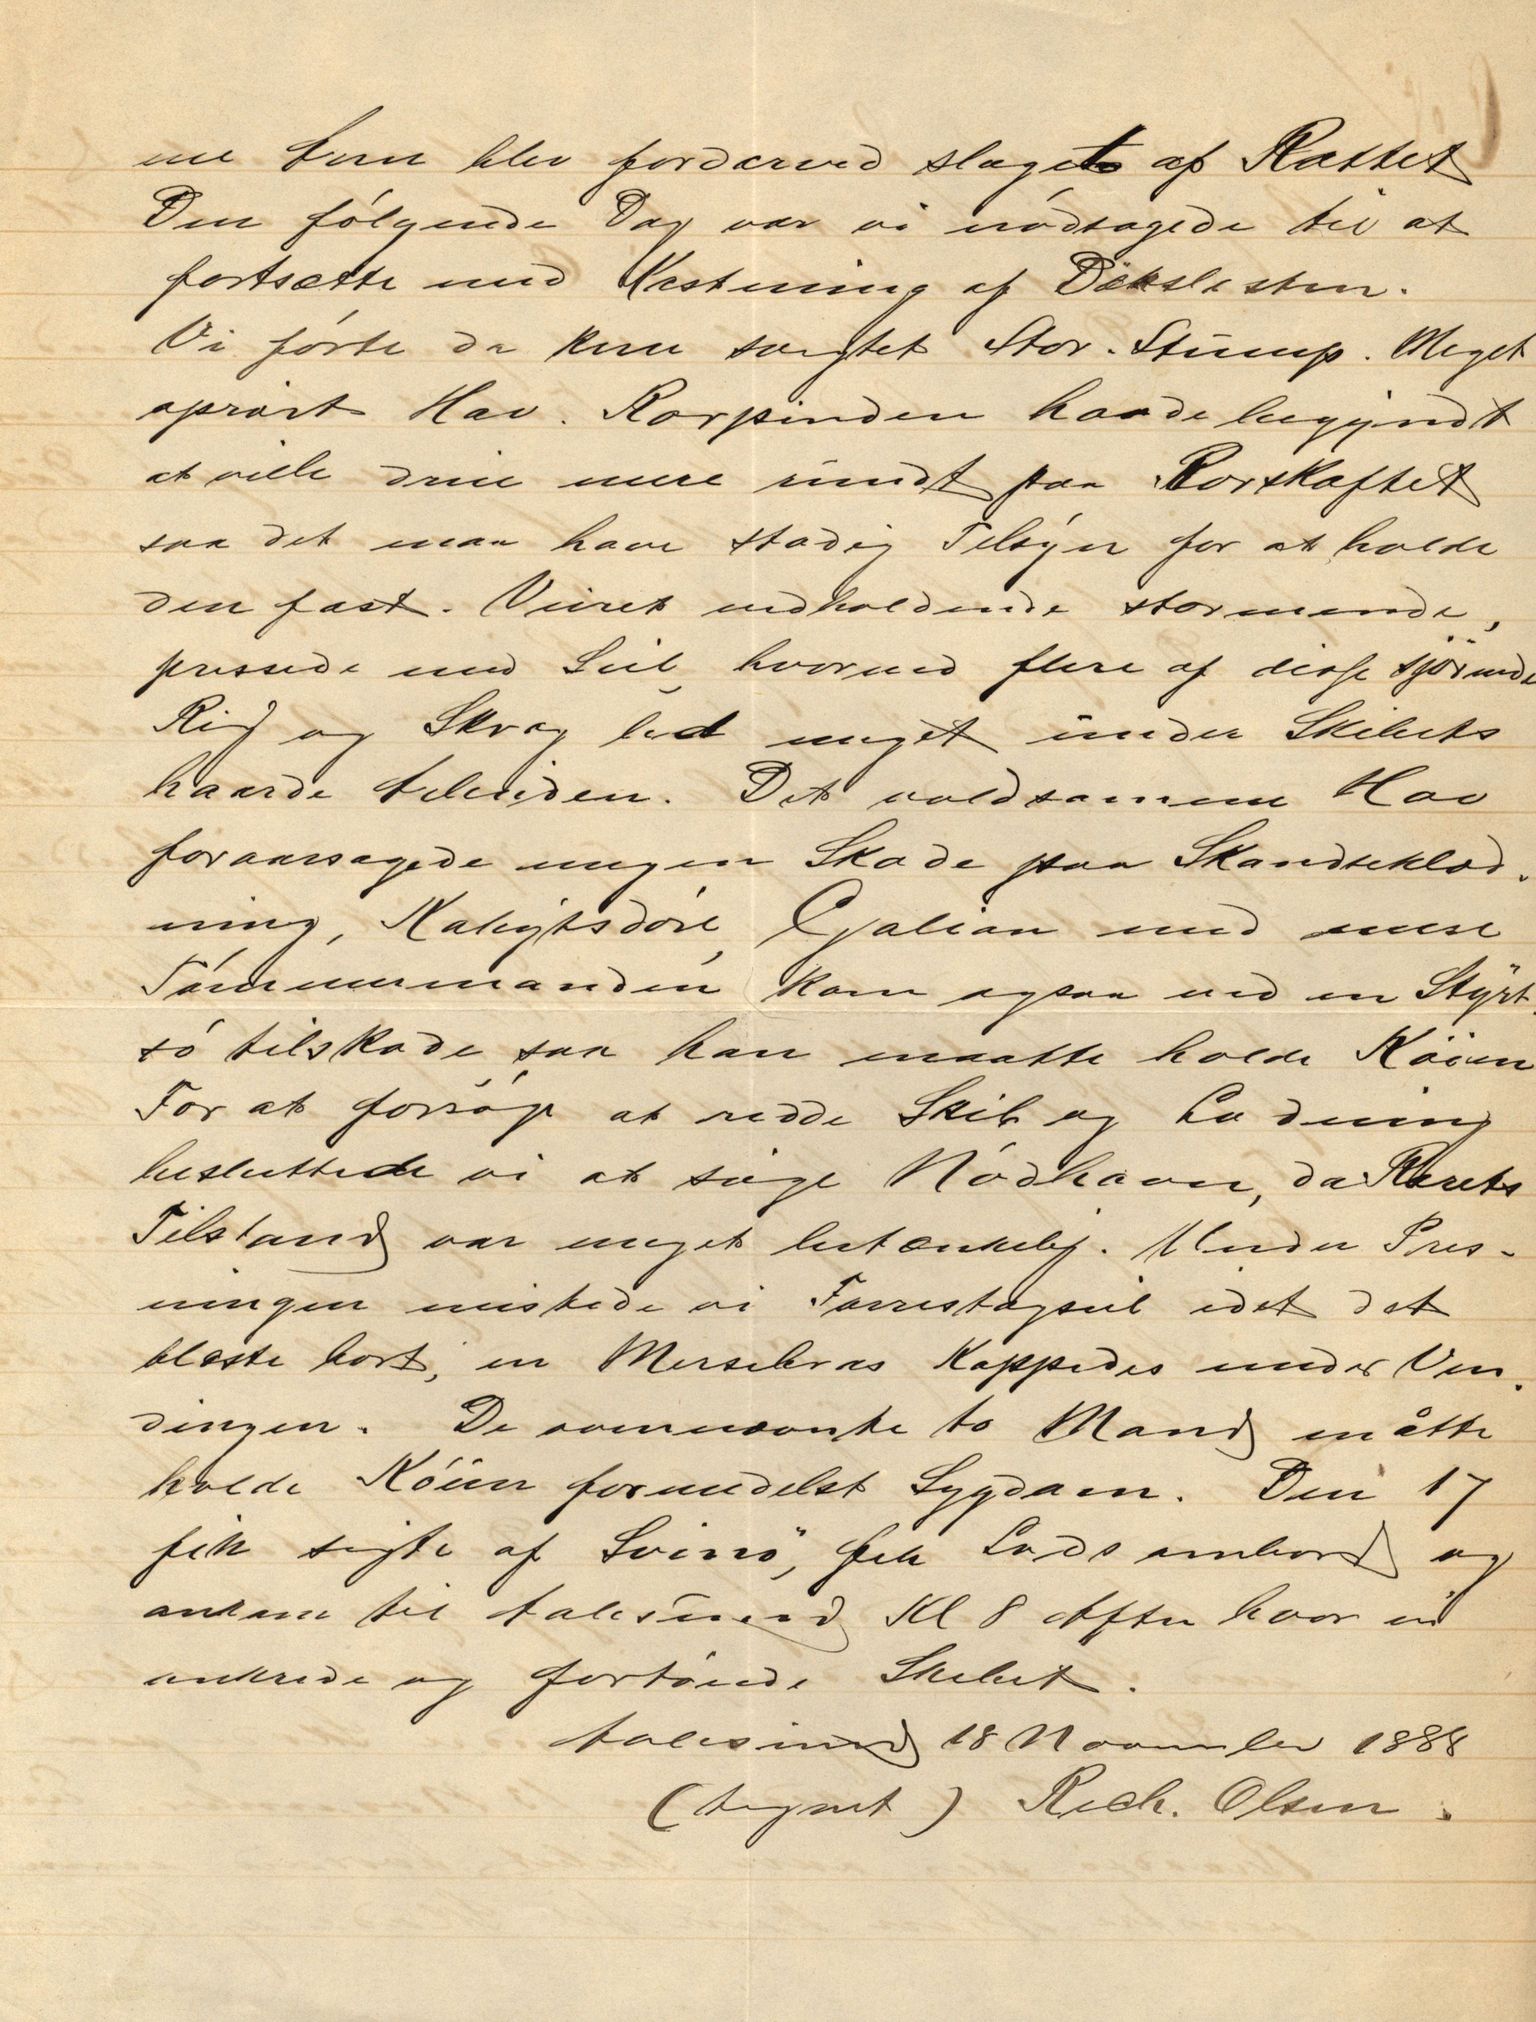 ene Arm blev fordærved slaget af Rattet
Den følgende Dag var vi nødsagede til at
fortsætte med Kastning af Dækslasten.
Vi førte da kun svigtet Stor. Stump. Meget
oprørt Hav. Rorpinden havde begyndt
at ville dreie mere rundt paa Rorskaftet
saa det maa have stadig Tilsyn for at holde
den fast. Veiret vedholdende stormende,
pressede med Seil, hvorved flere af disse
Rig og Skrog led meget under Skibets
haarde Arbeiden. Det voldsomme Hav
foraarsagede megen Skade paa Skandseklæd-
ning, Kahytsdøre, Galion med mere
Tømmermanden kom ogsaa ved en Styrt-
sø tilskade, saa han maatte holde Køien
For at forsøge at redde Skib og Ladning
besluttede vi at søge Nødhavn, da Rorets
Tilstand var meget betænkelig. Under Pres-
ningen mistede vi Forrestagseil idet det
blæste bort, en Mersebras kappedes under Ven-
dingen. De ovennævnte to Mand måtte
holde Køien formedelst Sygdom. Den 17
fik sigte af Svinö, fik Lods ombord og
ankom til Aalesund Kl 8 Aften hvor vi
ankrede og fortøiede Skibet.
Aalesund 18 November 1888
(tegnet) Rich. Olsen.